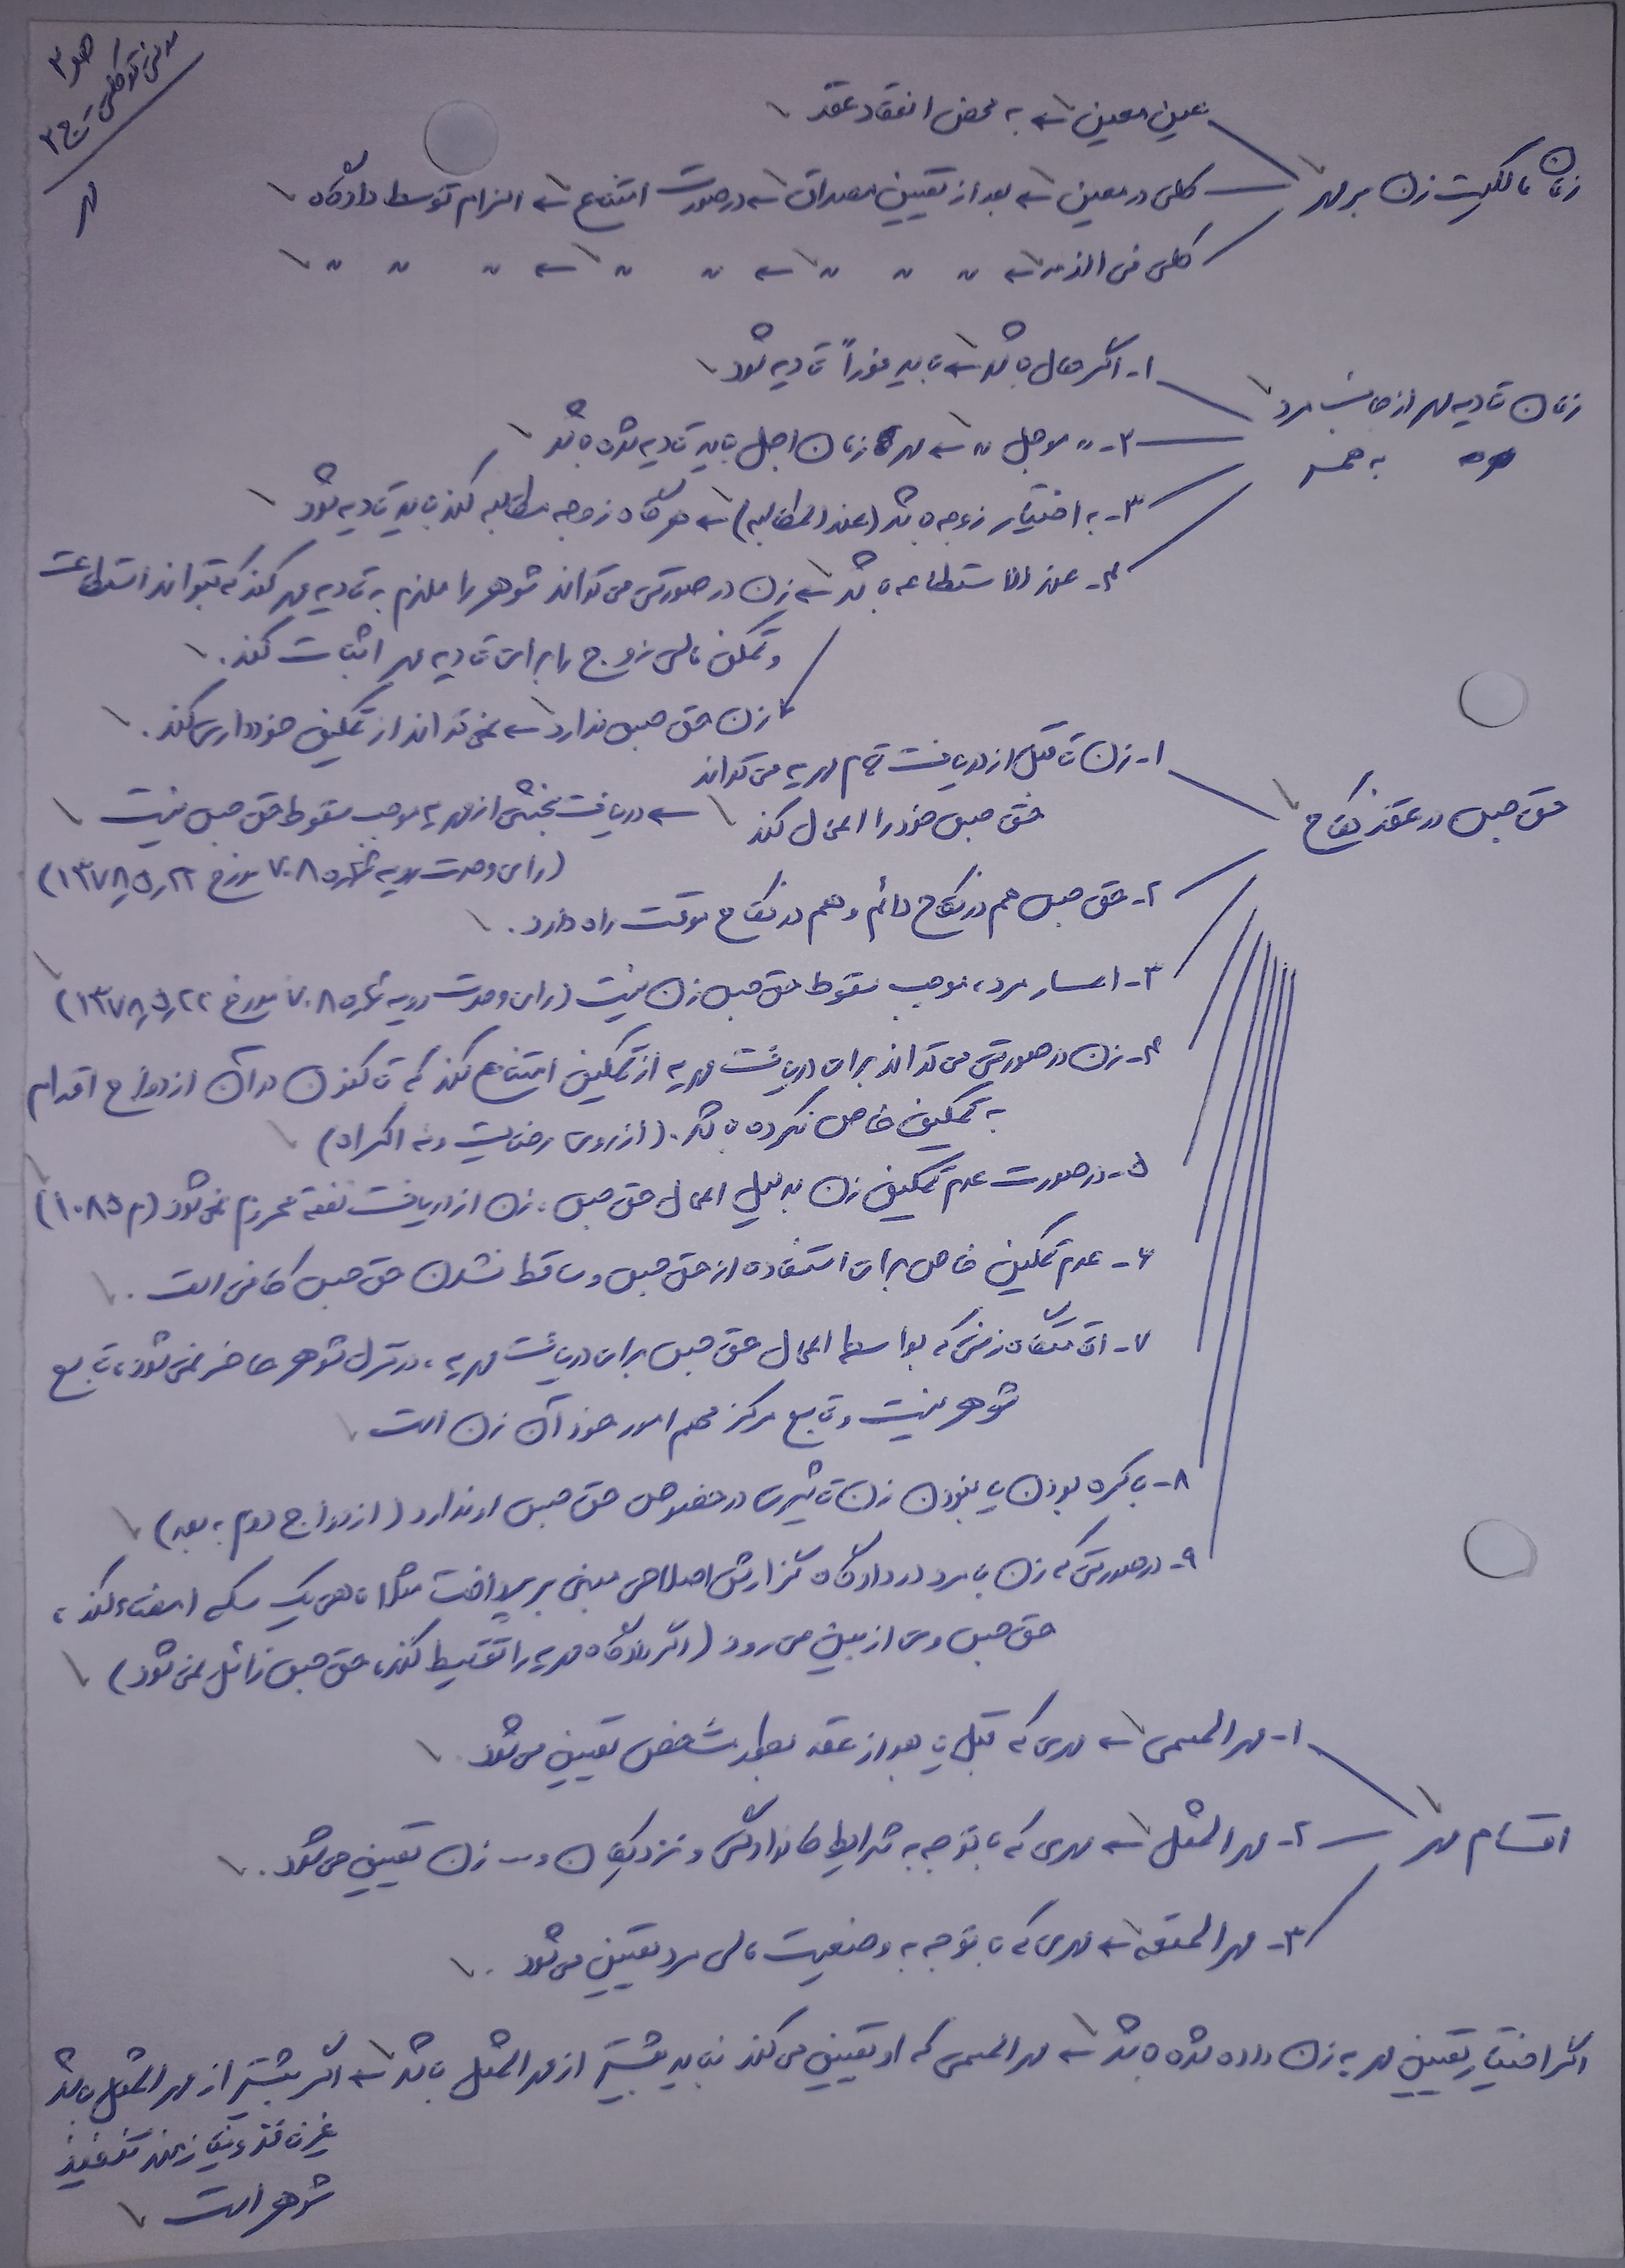 ص ۳
مدنی توکلی ج ۲
مهر
زمان مالکیت زن بر مهر
عین معین ← به محض انعقاد عقد
کلی در معین ← بعد از تعیین مصداق ← در صورت امتناع ← الزام توسط دادگاه
کلی فی الذمه ← " " " ← " " ← " " " "
زمان تادیه مهر از جانب مرد به همسر
۱- اگر حال باشد ← باید فوراً تادیه شود
۲- " موجل " ← مهر زمان اجل باید تادیه شده باشد
۳- به اختیار زوجه باشد (عندالمطالبه) ← هرگاه زوجه مطالبه کند باید تادیه شود
۴- عند الاستطاعه باشد ← زن در صورتی می تواند شوهر را ملزم به تادیه مهر کند که بتواند استطاعت
و تمکن مالی زوج را برای تادیه مهر اثبات کند.
زن حق حبس ندارد ← نمی تواند از تمکین خودداری کند.
حق حبس در عقد نکاح
۱- زن تا قبل از دریافت تمام مهریه می تواند
حق حبس خود را اعمال کند ← دریافت بخشی از مهریه موجب سقوط حق حبس نیست
(رای وحدت رویه شماره ۷۰۸ مورخ ۱۳۷۸٫۵٫۲۲)
۲- حق حبس هم در نکاح دائم و هم در نکاح موقت راه دارد.
۳- اعسار مرد، موجب سقوط حق حبس زن نیست (رای وحدت رویه شماره ۷۰۸ مورخ ۱۳۷۸٫۵٫۲۲)
۴- زن در صورتی می تواند برای دریافت مهریه از تمکین امتناع کند که تاکنون در آن ازدواج اقدام
به تمکین خاص نکرده باشد. (از روی رضایت و نه اکراه)
۵- در صورت عدم تمکین زن به دلیل اعمال حق حبس، زن از دریافت نفقه محروم نمی شود (م ۱۰۸۵)
۶- عدم تمکین خاص برای استفاده از حق حبس و ساقط نشدن حق حبس کافی است.
۷- اقامتگاه زنی که بواسطه اعمال حق حبس برای دریافت مهریه، در منزل شوهر حاضر نمی شود، تابع
شوهر نیست و تابع مرکز مهم امور خود آن زن است
۸- باکره بودن یا نبودن زن تاثیری در خصوص حق حبس او ندارد (ازدواج دوم به بعد)
۹- در صورتی که زن با مرد در دادگاه گزارش اصلاحی مبنی بر پرداخت مثلا ماهی یک سکه امضاء کند،
حق حبس وی از بین می رود (اگر دادگاه مهریه را تقسیط کند، حق حبس زائل نمی شود)
اقسام مهر
۱- مهر المسمی ← مهری که قبل یا بعد از عقد بطور مشخص تعیین می شود.
۲- مهر المثل ← مهری که با توجه به شرایط خانوادگی و نزدیکان و... زن تعیین می شود.
۳- مهر المتعه ← مهری که با توجه به وضعیت مالی مرد تعیین می شود.
اگر اختیار تعیین مهر به زن داده شده باشد ← مهر المسمی که او تعیین می کند نباید بیشتر از مهر المثل باشد ← اگر بیشتر از مهر المثل باشد
غیرنافذ و نیازمند تنفیذ
شوهر است